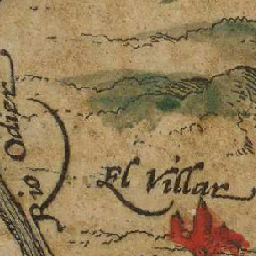 Rio Odier
El Villar